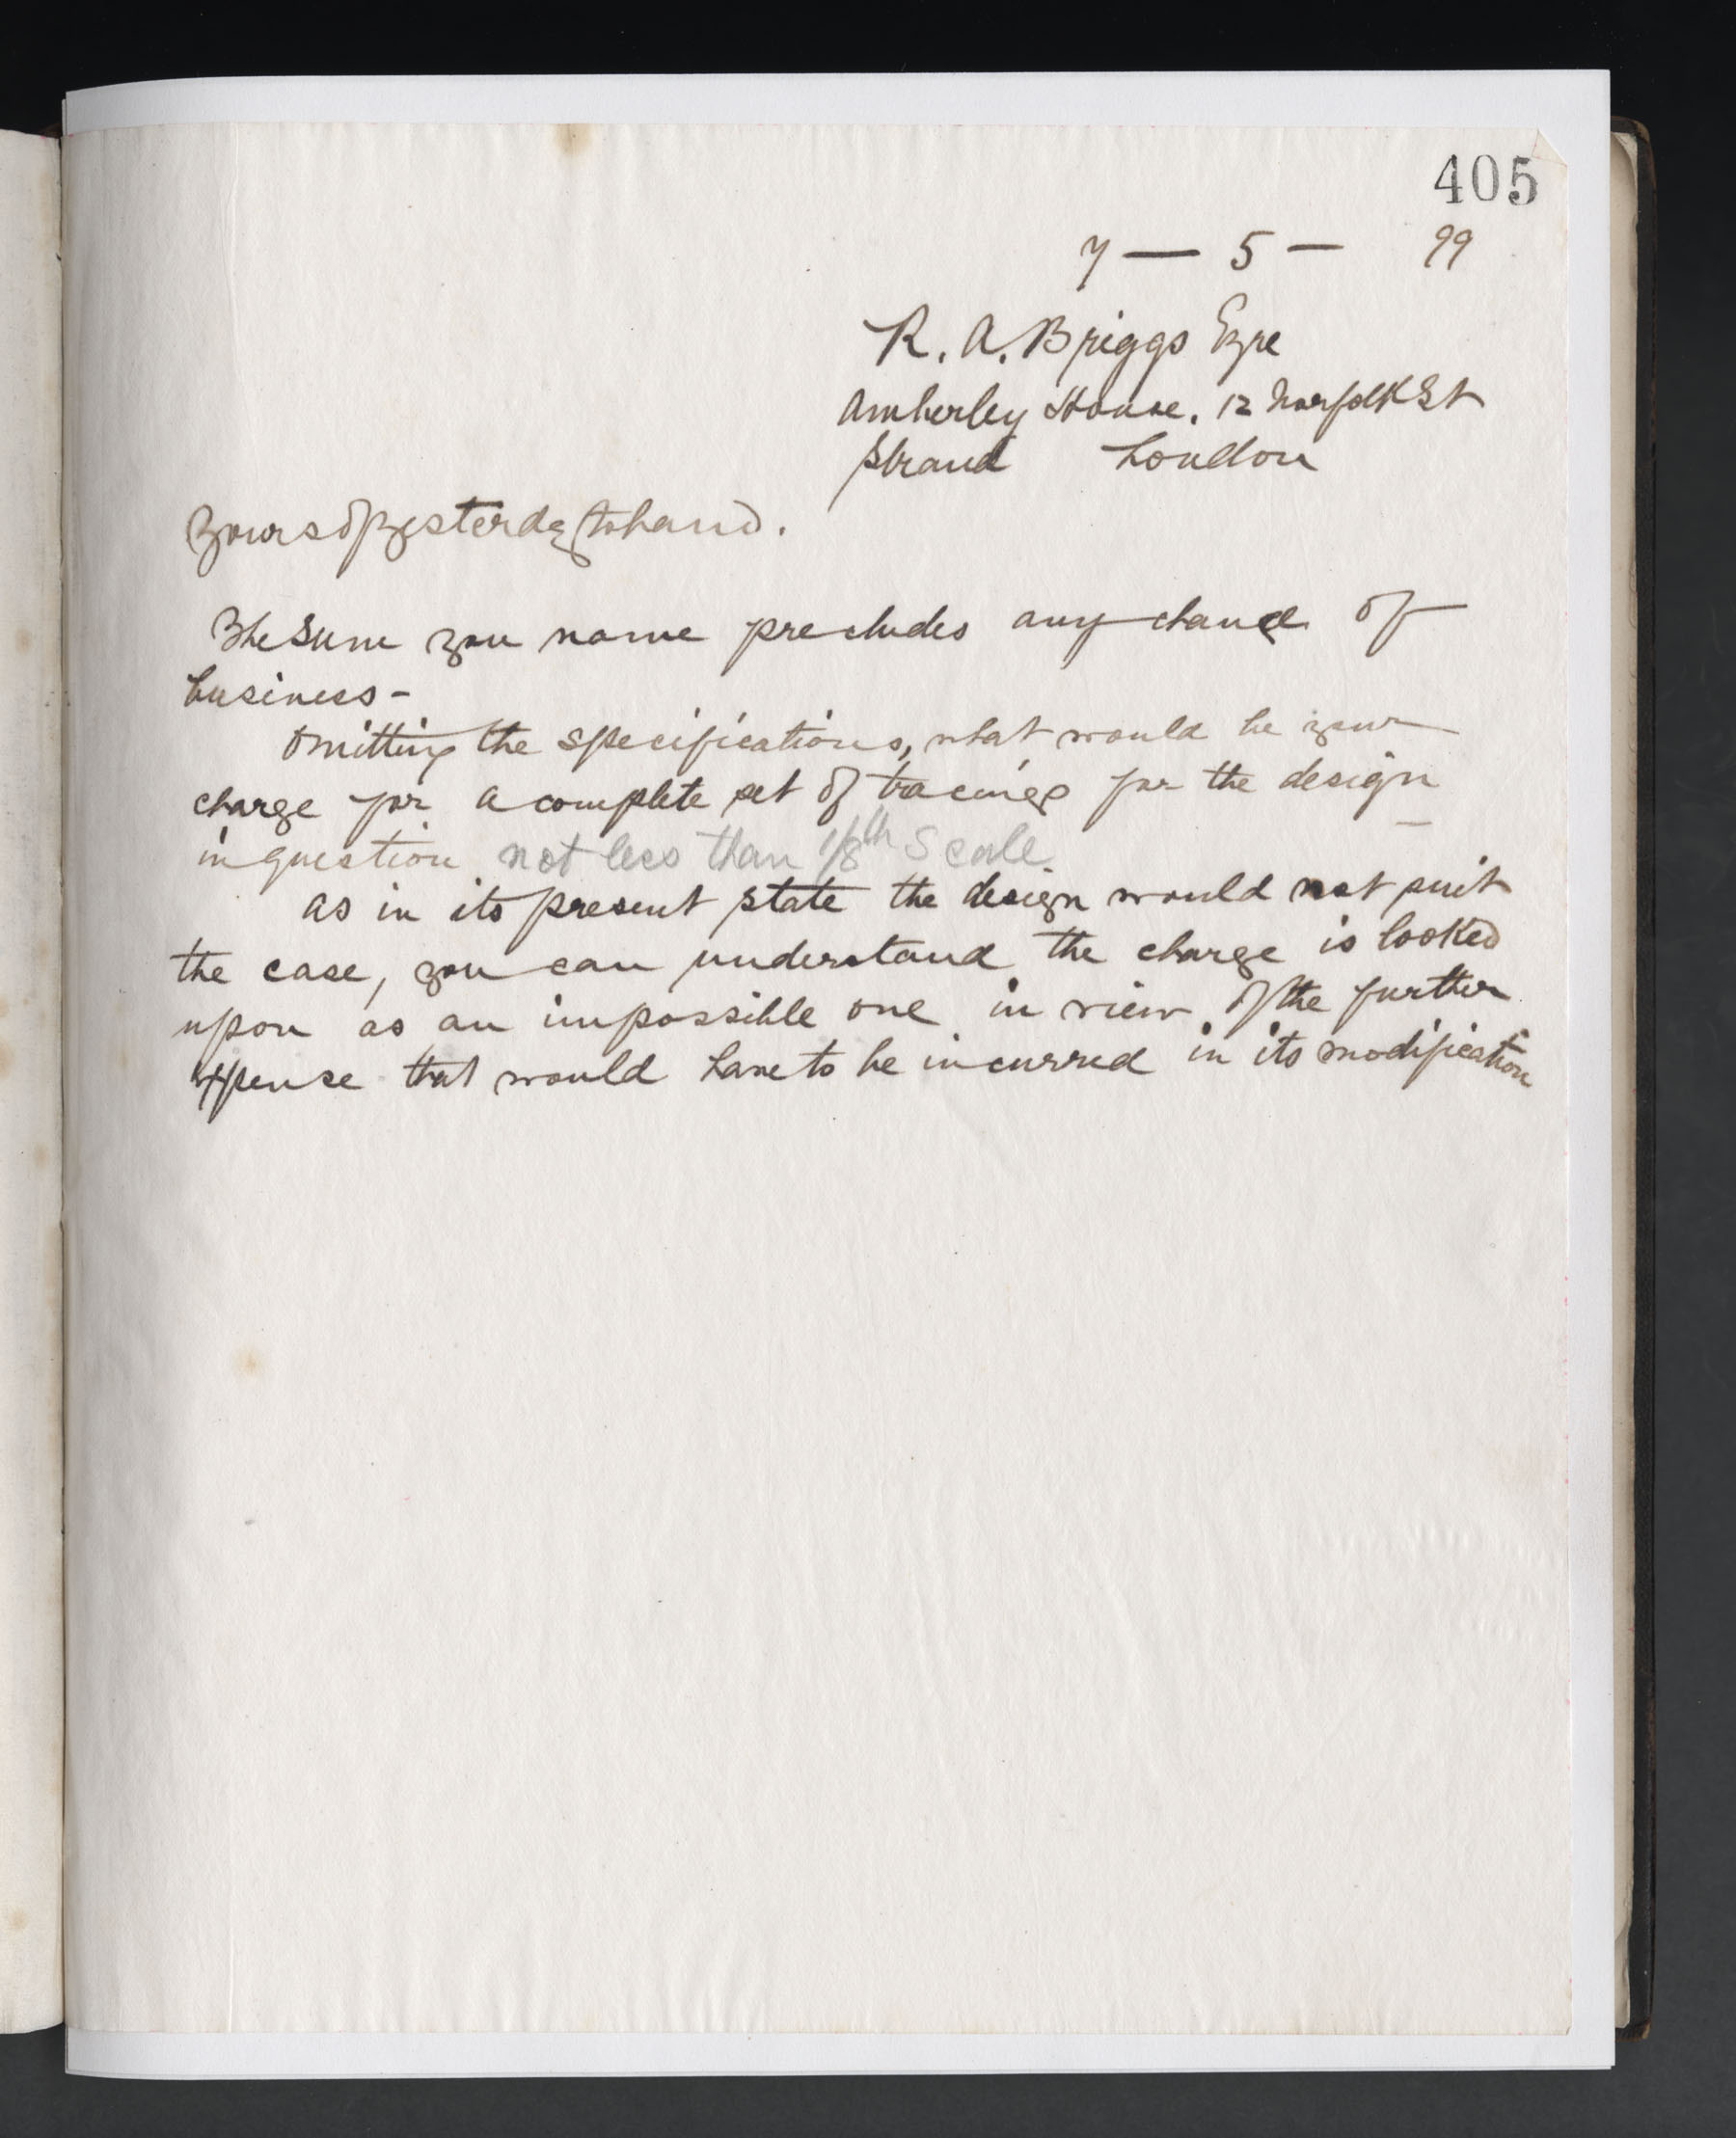 405
7 — 5 — 99
R. A. Briggs Esqre
Amberley House. 12 Norfolk St
Strand London
Yours of yesterday to hand.
The sum you name precludes any chance of
business -
Omitting the specifications, what would be your
charge for a complete set of tracings for the design
in question not less than 1/8th Scale
As in its present state the design would not suit
the case, you can understand the charge is looked
upon as an impossible one in view of the further
expense that would have to be incurred in its modification